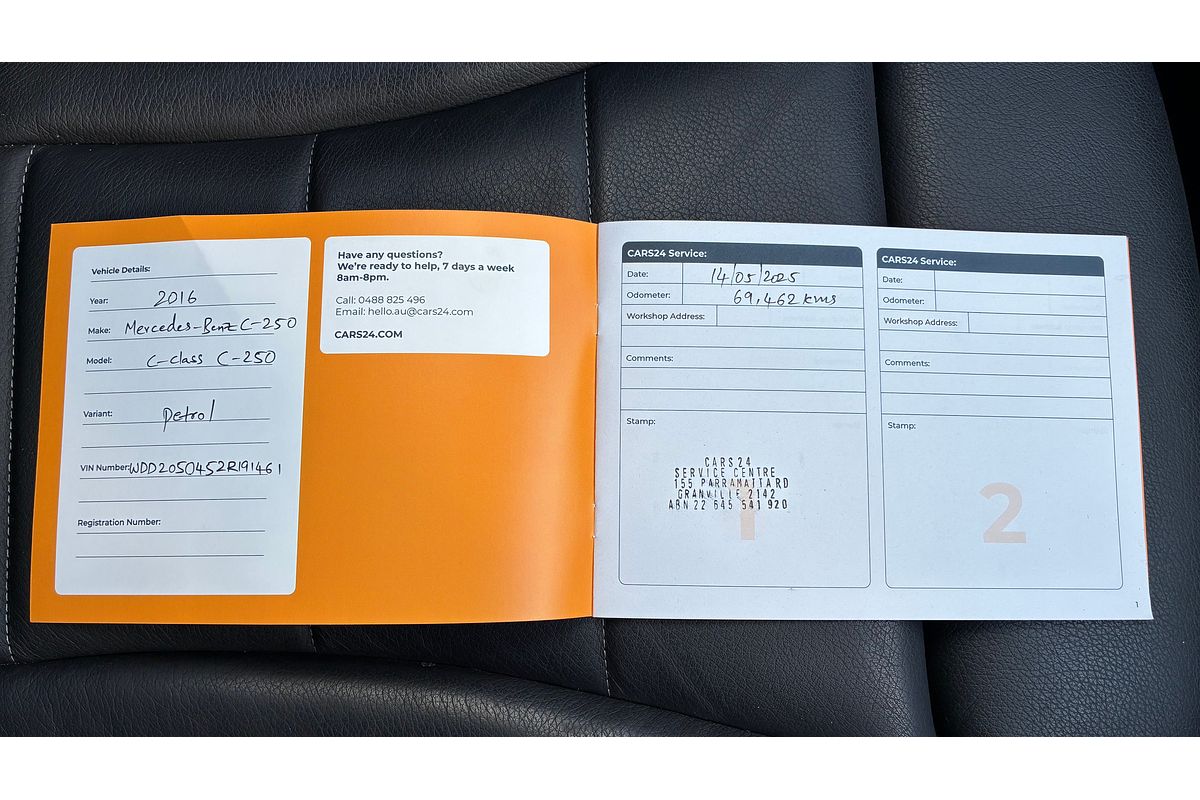 Vehicle Details:
Year: 2016
Make: Mercedes-Benz C-250
Model: C-class C-250
Variant: petrol
VIN Number: WDD2050452R191461
Registration Number:
Have any questions?
We're ready to help, 7 days a week
8am-8pm.
Call: 0488 825 496
Email: hello.au@cars24.com
CARS24.COM
CARS24 Service:
Date: 14/05/2025
Odometer: 69,462 kms
Workshop Address:
Comments:
Stamp:
CARS24
SERVICE CENTRE
155 PARRAMATTA RD
GRANVILLE 2142
ABN 22 645 541 920
1
CARS24 Service:
Date:
Odometer:
Workshop Address:
Comments:
Stamp:
2
1